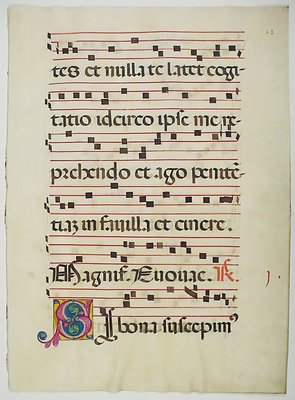 12
tes et nulla te latet cogi
tatio idcirco ipse me re-
prehendo et ago penitē-
tiaz in fauilla et cinere.
Magnif. Euouae. R.
Si bona suscepimꝰ